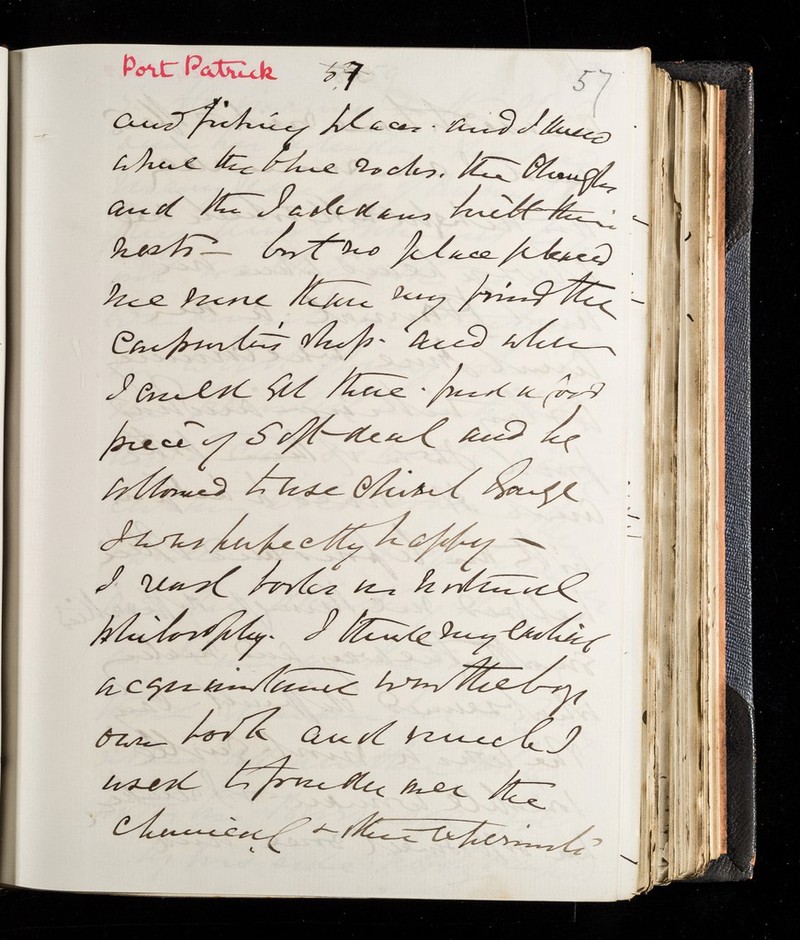 Port Patrick 57 57
and fishing places. and I knew
where the blue rocks. the Choughs
and the Jackdaws built their
nests — but no place pleased
me more than my friend the
carpenter's shop. and when
I could get there. find a good
piece of Soft deal and be
allowed to use chisel & gouge
I was perfectly happy —
I read books on natural
philosophy. I think my earliest
acquaintance was the boys
own book and much I
used to ponder over the
chemical & other experiments